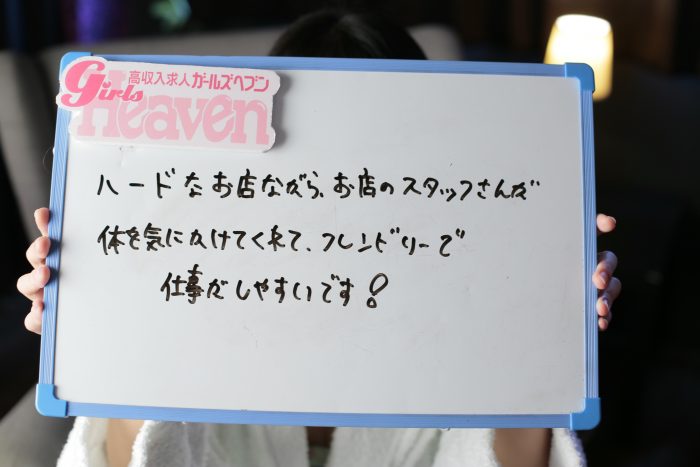 高収入求人ガールズヘブン
Girls
Heaven
ハードなお店ながら、お店のスタッフさんが
体を気にかけてくれて、フレンドリーで
仕事がしやすいです!